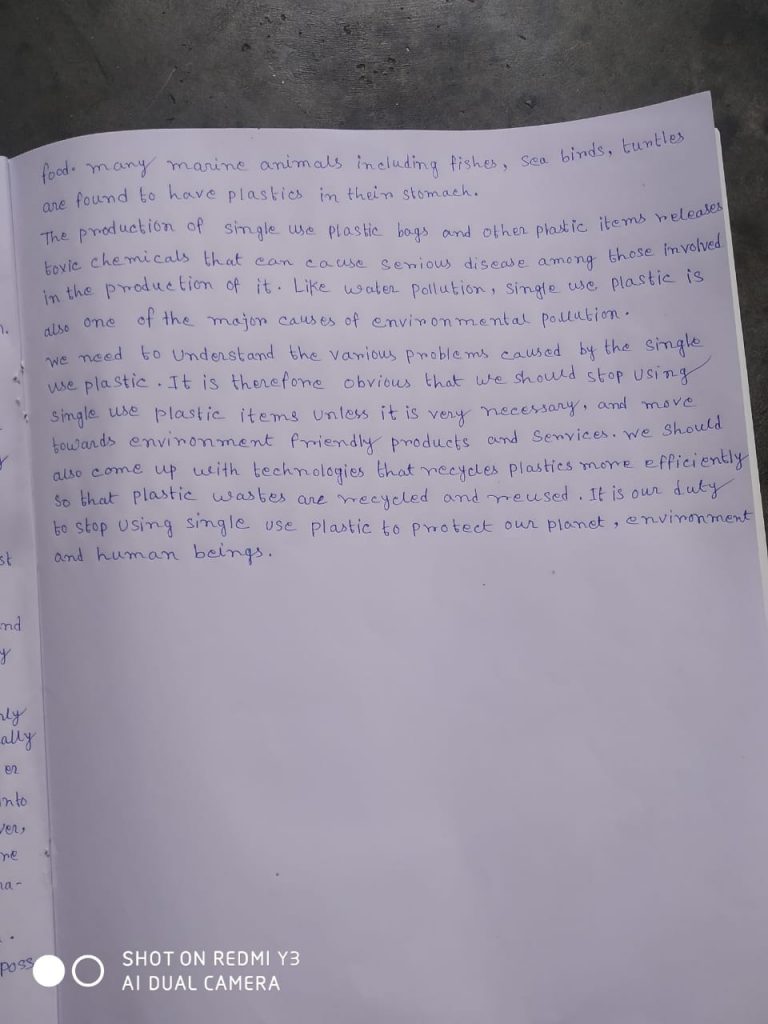 food. many marine animals including fishes, sea birds, turtles
are found to have plastics in their stomach.
The production of single use plastic bags and other plastic items releases
toxic chemicals that can cause serious disease among those involved
in the production of it. Like water pollution, single use plastic is
also one of the major causes of environmental pollution.
we need to understand the various problems caused by the single
use plastic. It is therefore obvious that we should stop using
single use plastic items unless it is very necessary, and move
towards environment friendly products and services. we should
also come up with technologies that recycles plastics more efficiently
so that plastic wastes are recycled and reused. It is our duty
to stop using single use plastic to protect our planet, environment
and human beings.
SHOT ON REDMI Y3
AI DUAL CAMERA